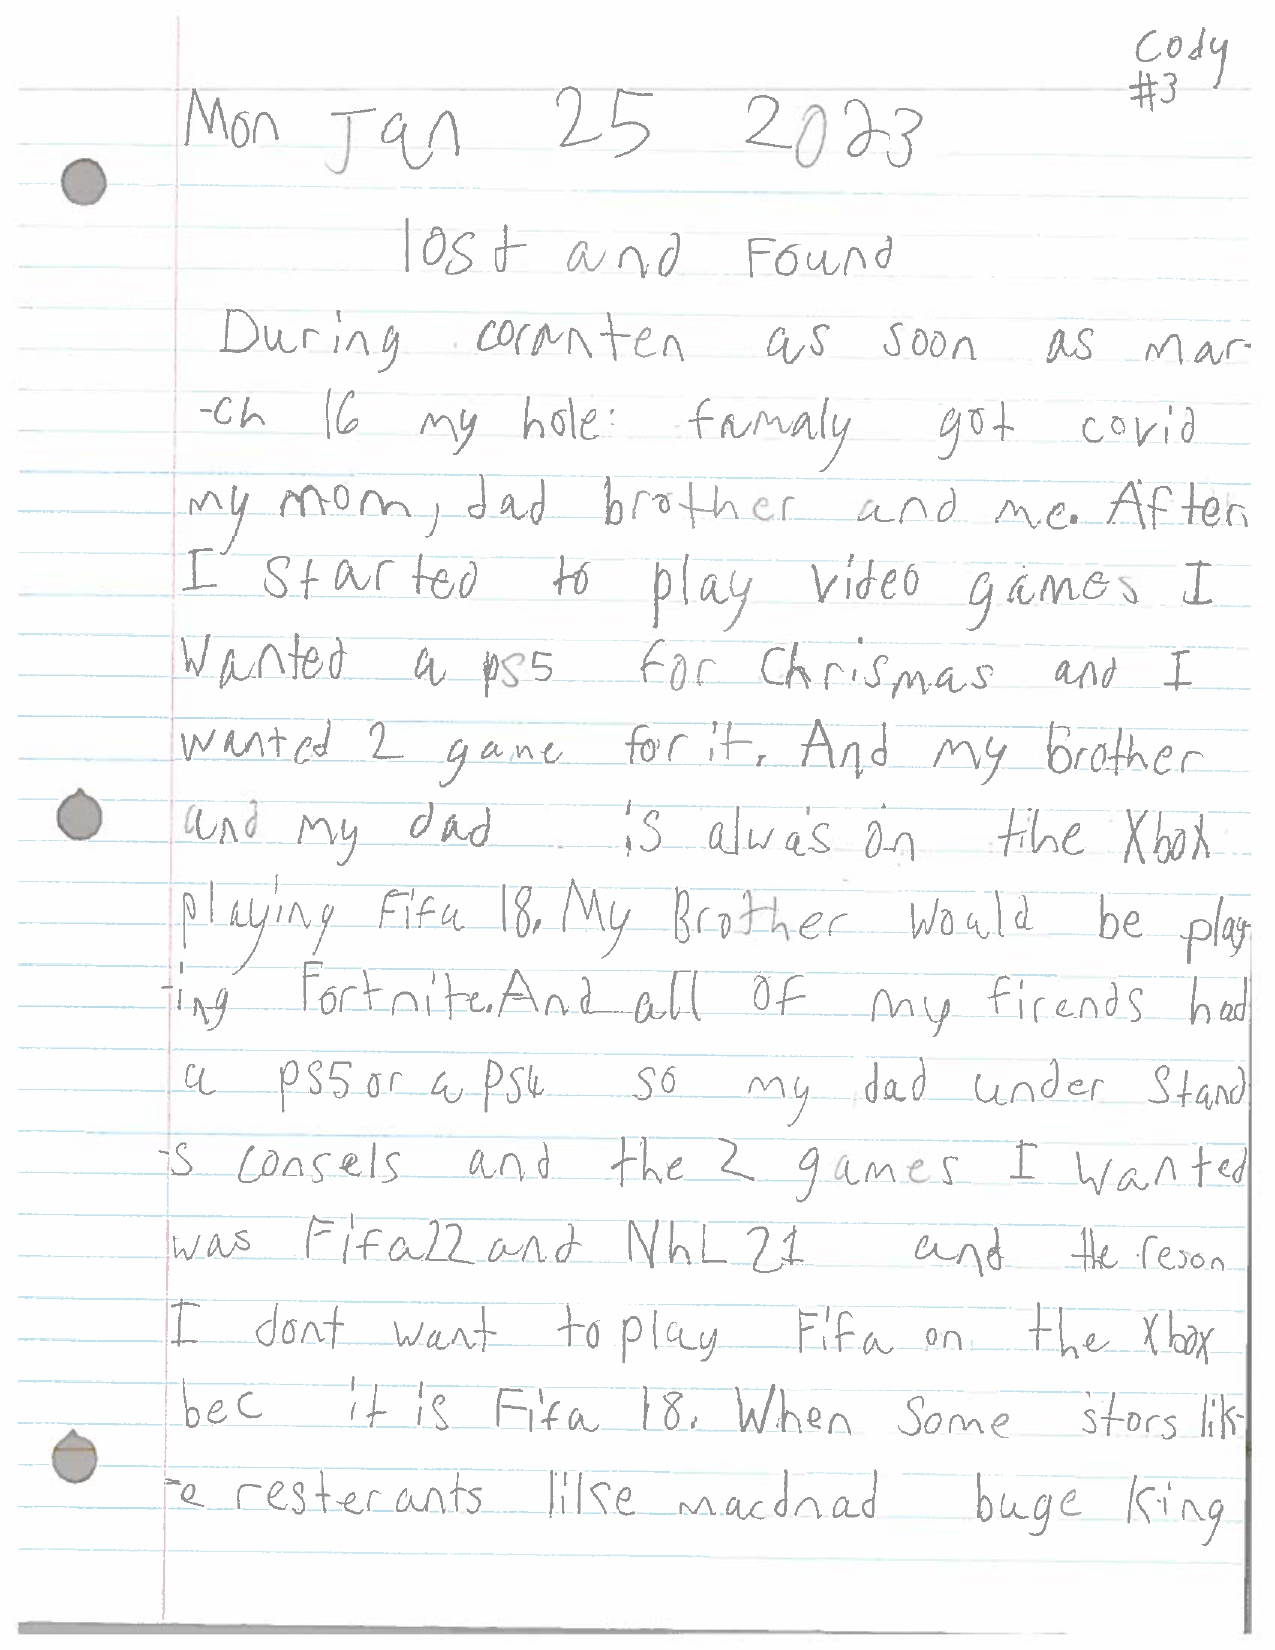 Cody
#3
Mon Jan 25 2023
lost and Found
During coranten as soon as mar-
-ch 16 my hole famaly got covid
my mom, dad brother and me. After
I started to play video games I
Wanted a ps5 for Chrismas and I
wanted 2 game for it. And my Brother
and my dad is alwas on the Xbox
playing Fifa 18. My Brother would be play
-ing Fortnite. And all of my firends had
a ps5 or a ps4 so my dad under stand
-s consels and the 2 games I wanted
was Fifa22 and NhL 21 and the reson
I dont want to play Fifa on the Xbox
bec it is Fifa 18. When Some stors lik-
-e resterants like macdnad buge King